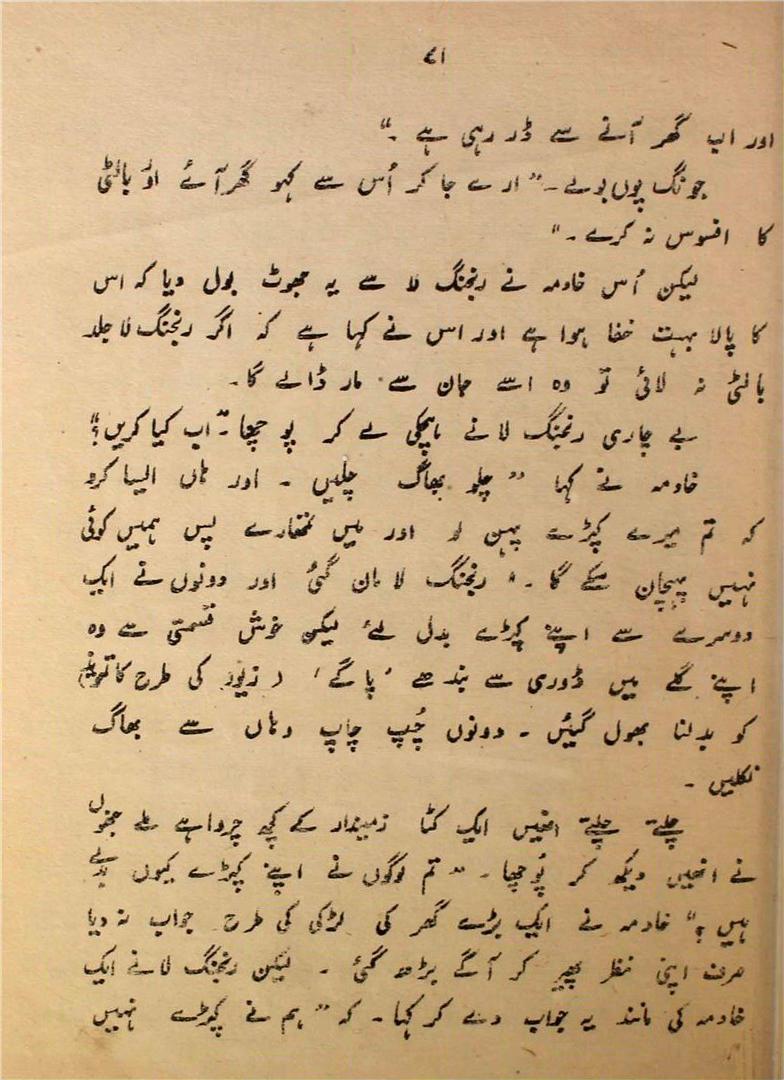 ۷۱
اور اب گھر آنے سے ڈر رہی ہے ۔"
جونگ پوں بولے ۔" ارے جا کر اُس سے کہو گھر آئے اور بالٹی
کا افسوس نہ کرے ۔"
لیکن اُس خادمہ نے رنجنگ لا سے یہ جھوٹ بول دیا کہ اس
کا پالا بہت خفا ہوا ہے اور اس نے کہا ہے کہ اگر رنجنگ لا جلد
بالٹی نہ لائی تو وہ اسے جان سے مار ڈالے گا۔
بے چاری رنجنگ لا نے ہچکی لے کر پوچھا۔ "اب کیا کریں؟"
خادمہ نے کہا " چلو بھاگ چلیں ۔ اور ہاں ایسا کرو
کہ تم میرے کپڑے پہن لو اور میں تمھارے پس ہمیں کوئی
نہیں پہچان سکے گا ۔" رنجنگ لا مان گئی اور دونوں نے ایک
دوسرے سے اپنے کپڑے بدل لئے لیکن خوش قسمتی سے وہ
اپنے گلے میں ڈوری سے بندھے 'پاگے' ( زیور کی طرح کا تعویذ)
کو بدلنا بھول گئیں ۔ دونوں چُپ چاپ وہاں سے بھاگ
نکلیں ۔
چلتے چلتے انھیں ایک زمیندار کے کچھ چرواہے ملے جنھوں
نے انھیں دیکھ کر پُوچھا ۔ " تم لوگوں نے اپنے کپڑے کیوں بدلے
ہیں ؟" خادمہ نے ایک بڑے گھر کی لڑکی کی طرح جواب نہ دیا
صرف اپنی نظر پھیر کر آگے بڑھ گئی ۔ لیکن رنجنگ لا نے ایک
خادمہ کی مانند یہ جواب دے کر کہا ۔ کہ " ہم نے کپڑے نہیں